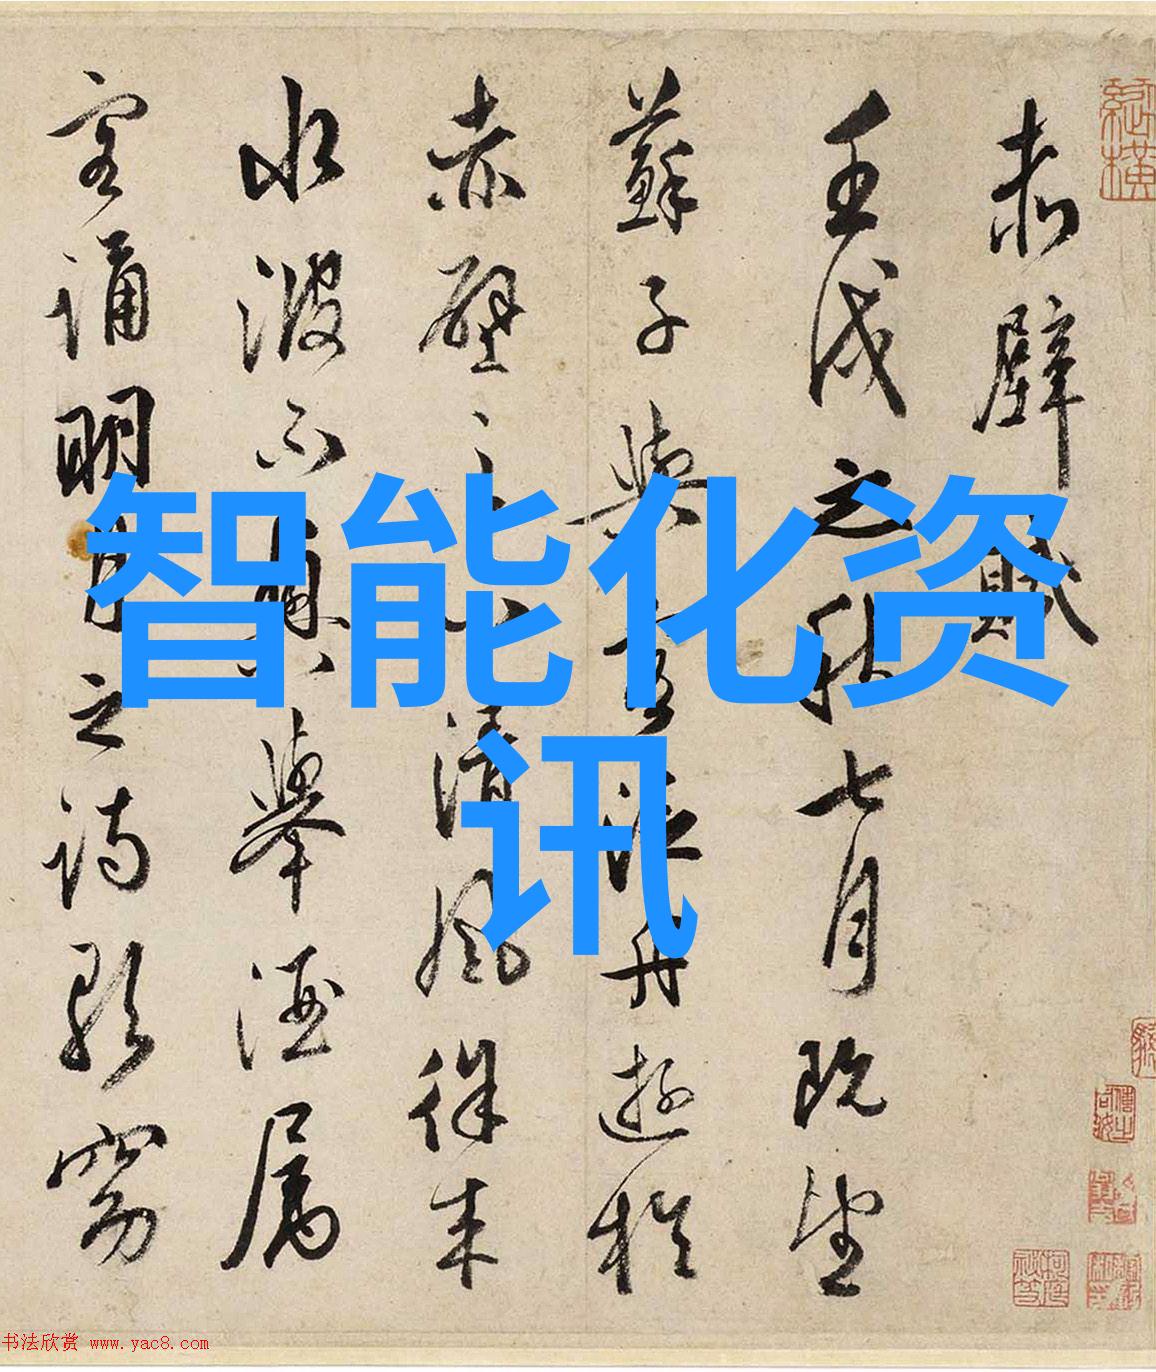 赤壁賦
壬戌之秋七月既望
蘇子與客泛舟遊於
赤壁之下清風徐来
水波不興舉酒屬
客誦明月之詩歌窈
智能化资
讯
书法欣赏 www.yac8.com